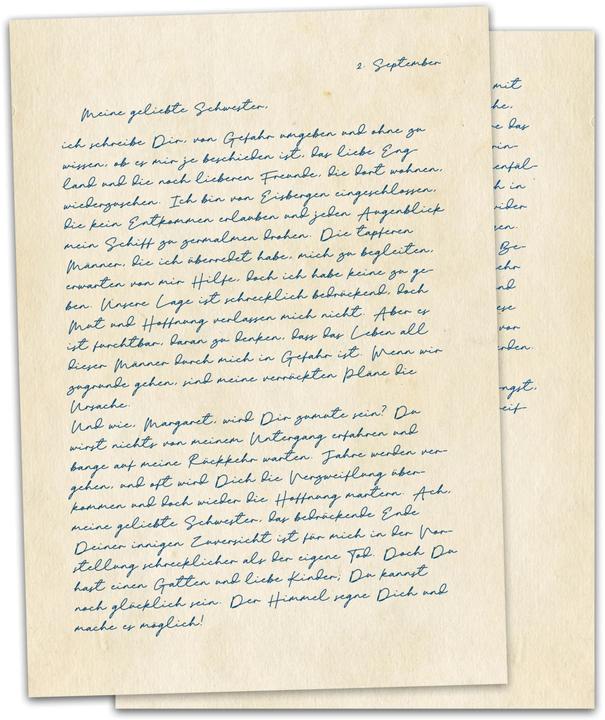 2. September
Meine geliebte Schwester,
ich schreibe Dir, von Gefahr umgeben und ohne zu
wissen, ob es mir je beschieden ist, das liebe Eng-
land und die noch lieberen Freunde, die dort wohnen,
wiederzusehen. Ich bin von Eisbergen eingeschlossen,
die kein Entkommen erlauben und jeden Augenblick
mein Schiff zu zermalmen drohen. Die tapferen
Männer, die ich überredet habe, mich zu begleiten,
erwarten von mir Hilfe, doch ich habe keine zu ge-
ben. Unsere Lage ist schrecklich bedrückend, doch
Mut und Hoffnung verlassen mich nicht. Aber es
ist furchtbar, daran zu denken, dass das Leben all
dieser Männer durch mich in Gefahr ist. Wenn wir
zugrunde gehen, sind meine verrückten Pläne die
Ursache.
Und wie, Margaret, wird Dir zumute sein? Du
wirst nichts von meinem Untergang erfahren und
bange auf meine Rückkehr warten. Jahre werden ver-
gehen, und oft wird Dich die Verzweiflung über-
kommen und doch wieder die Hoffnung martern. Ach,
meine geliebte Schwester, das bedrückende Ende
Deiner innigen Zuversicht ist für mich in der Vor-
stellung schrecklicher als der eigene Tod. Doch Du
hast einen Gatten und liebe Kinder; Du kannst
noch glücklich sein. Der Himmel segne Dich und
mache es möglich!
mit
he,
e das
rin-
enfäl-
h in
ider
en.
Be-
ehr
nd
ese
vor
rden.
ngst,
eif